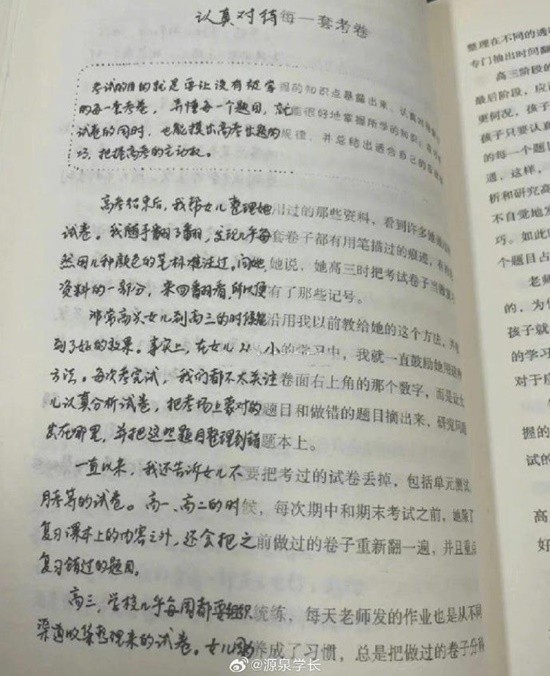 认真对待每一套考卷
考试的目的就是要让没有掌握的知识点暴露出来，认真对待
的每一套考卷，弄懂每一个题目，就能很好地掌握所学的知识；
试卷的同时，也能摸出高考出题的规律，并总结出适合自己的
巧，把握高考的主动权。
高考结束后，我帮女儿整理她用过的那些资料，看到许多
试卷。我随手翻了翻，发现几乎每套卷子都有用笔描过的痕迹，有
然用几种颜色的笔标准注过。问她，她说，她高三时把考试卷子当做
资料的一部分，来回翻看，所以便有了那些记号。
非常高兴女儿到高三的时候能沿用我以前教给她的这个方法，并
到了好的效果。事实上，在女儿从小的学习中，我就一直鼓励她用这种
方法。每次考完试，我们都不太关注卷面右上角的那个数字，而是让女
儿认真分析试卷，把考场上蒙对的题目和做错的题目摘出来，研究问题
出在哪里，并把这些题目整理到错题本上。
一直以来，我还告诉女儿不要把考过的试卷丢掉，包括单元测试、
月考等的试卷。高一、高二的时候，每次期中和期末考试之前，她除了
复习课本上的内容之外，还会把之前做过的卷子重新翻一遍，并且重点
复习错过的题目。
高三，学校几乎每周都要组织统练，每天老师发的作业也是从不同
渠道收集整理来的试卷。女儿因为养成了习惯，总是把做过的卷子分科
整理在不同的透
专门抽出时间翻
高三阶段的
最后阶段，应
更何况，孩子
孩子只要认真
的每一个题目
通，这样，
析和研究高
不自觉地发
巧。如此
个题目占
老师
的，为
孩子就
的学习
对于
握的
试的
高
好
@源泉学长